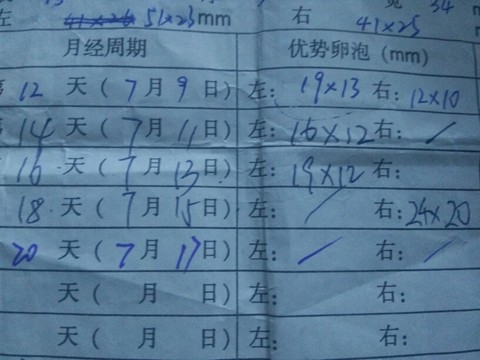 左 51×23mm 右 41×25
月经周期 优势卵泡(mm)
12 天(7月9日) 左: 19×13 右: 12×10
14 天(7月11日) 左: 16×12 右: /
16 天(7月13日) 左: 19×12 右:
18 天(7月15日) 左: / 右: 24×20
20 天(7月17日) 左: / 右: /
天( 月 日) 左: 右:
天( 月 日) 左: 右: